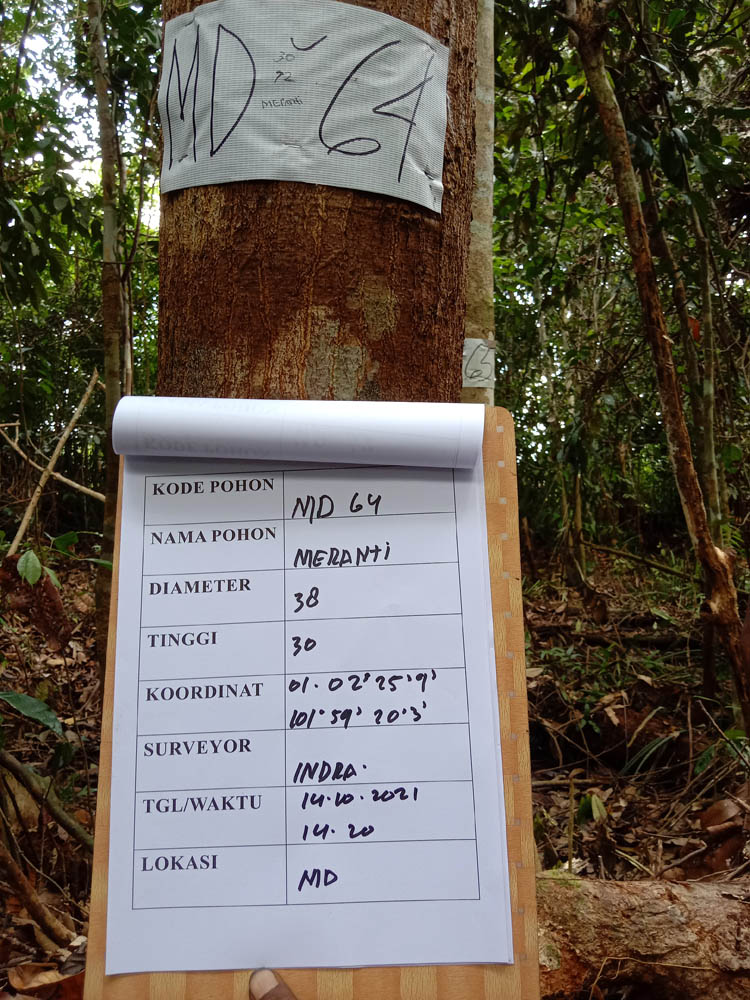 MD - 64
30
MERANTI
63
KODE POHON MD 64
NAMA POHON MERANTI
DIAMETER 38
TINGGI 30
KOORDINAT 01.02'25'9'
101°59' 20'3'
SURVEYOR INDRA.
TGL/WAKTU 14.10.2021
14.20
LOKASI MD